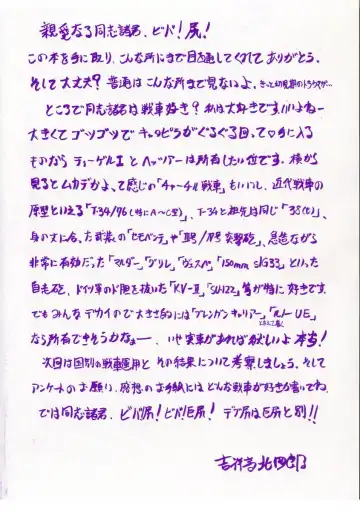 親愛なる同志諸君、ビバ!尻!
この本を手に取り、こんな所にまで目を通してくれてありがとう。
そして大丈夫?普通はこんな所まで見ないよ。きっと幼児期のトラウマが…
ところで同志諸君は戦車好き?私は大好きです。いいよねー
大きくてゴツゴツでキャタピラがぐるぐる回って♡手に入る
ものならティーゲルIとヘッツァーは所有したい位です。横から
見るとムカデかよ、って感じの「チャーチル戦車」もいいし、近代戦車の
原型といえる「T-34/76(特にA〜C型)」、T-34と祖先は同じ「38(t)」、
身の丈に合った武装の「セモベンテ」や「III号/IV号突撃砲」、急造ながら
非常に有効だった「マルダー」「グリレ」「ヴェスペ」「150mm sIG33」といった
自走砲、ドイツ軍のド胆を抜いた「KV-II」「SU-122」等が特に好きです。
でもみんなデカイので大きさ的には「ブレンガンキャリアー」「ルノーUE」
なら所有できそうかなぁー、いや実車があれば欲しいよ本当!
次回は国別の戦車運用とその結果について考察しましょう。そして
アンケートのお願い、感想のお手紙にはどんな戦車が好きか書いてね。
では同志諸君、ビバ尻!ビバ巨尻!デブ尻は巨尻と別!!
吉祥寺北四郎